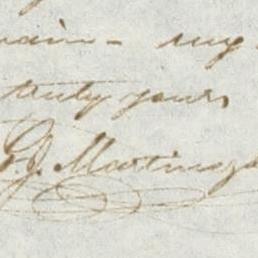 my
truly yours
G. J. Martinez